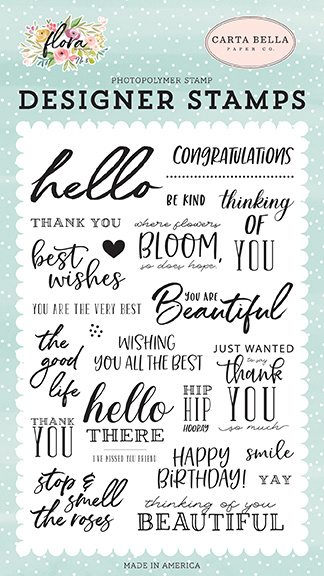 flora
CARTA BELLA
PAPER CO.
PHOTOPOLYMER STAMP
DESIGNER STAMPS
hello
CONGRATULATIONS
BE KIND
thinking
OF
YOU
THANK YOU
where flowers
BLOOM,
so does hope.
best
wishes
YOU ARE THE VERY BEST
YOU ARE
Beautiful
the
good
life
WISHING
YOU ALL THE BEST
JUST WANTED
to say
thank
YOU
so much
hello
THERE
HIP
HIP
HOORAY
THANK
YOU
I'VE MISSED YOU FRIEND
HAPPY
BIRTHDAY!
smile
YAY
stop &
smell
the roses
thinking of you
BEAUTIFUL
MADE IN AMERICA